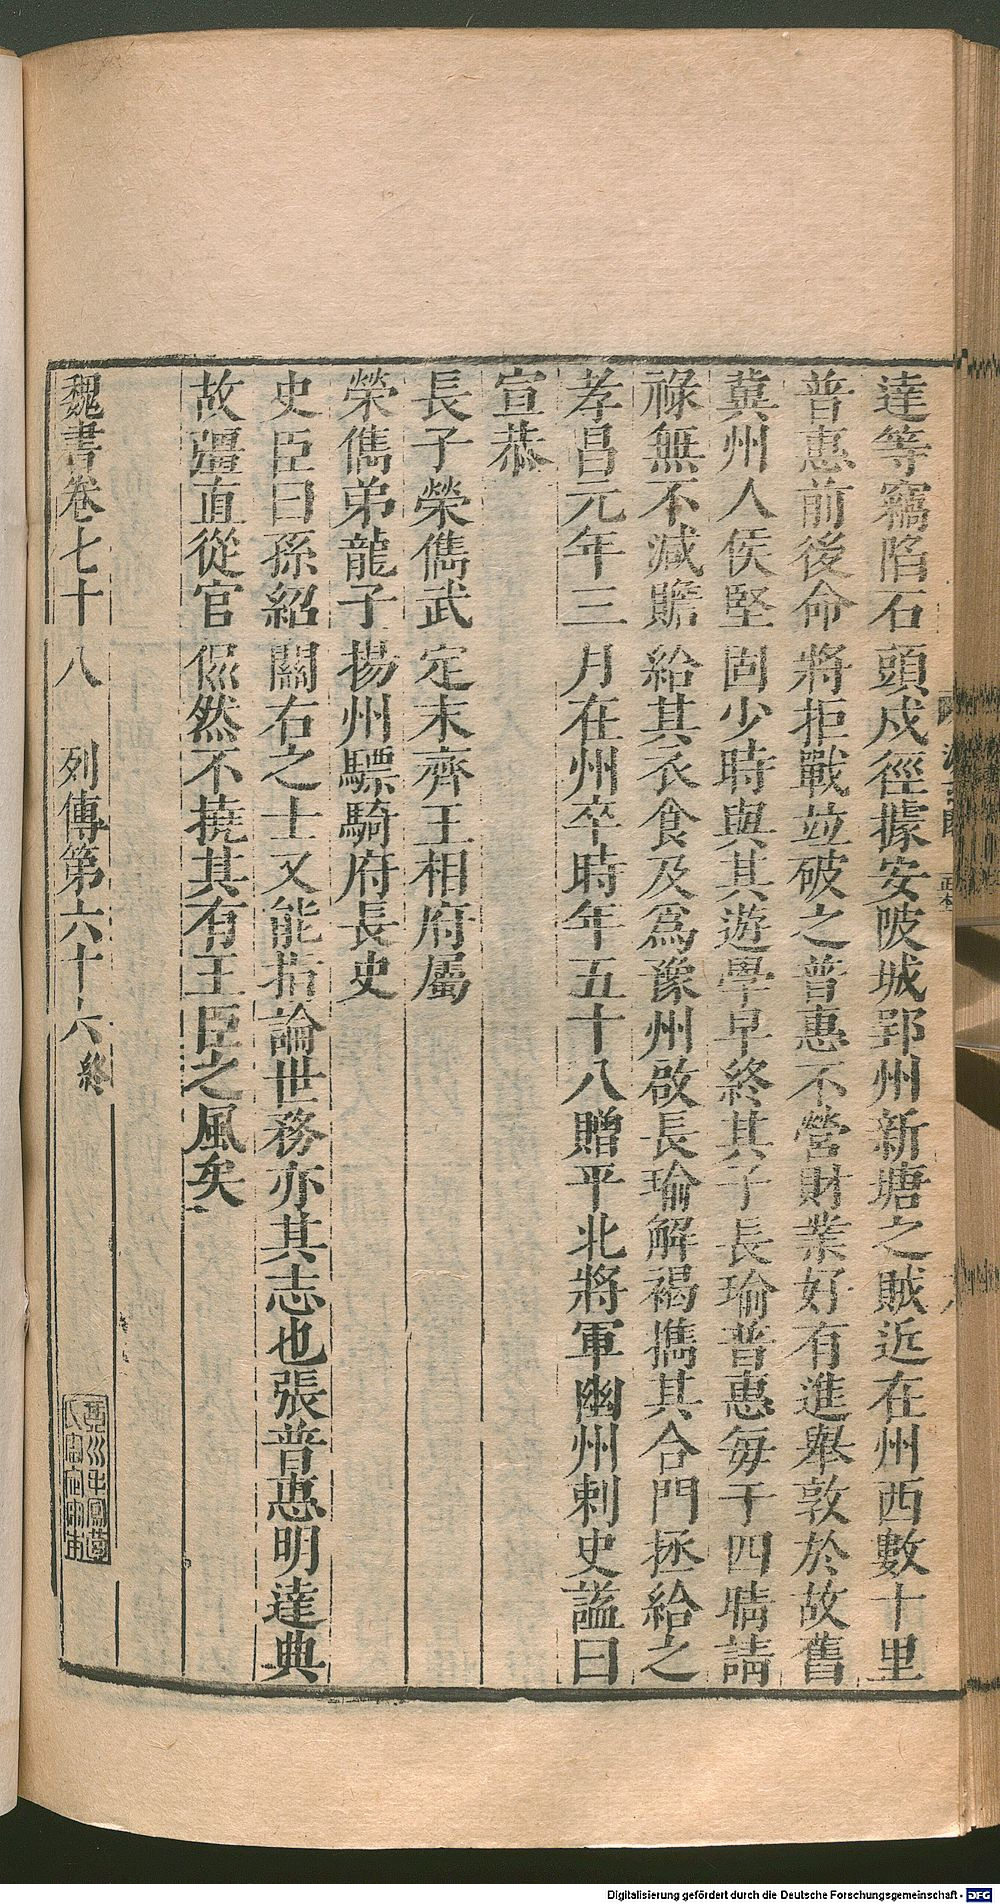 達等竊陷石頭戍徑據安陂城郢州新塘之賊近在州西數十里
普惠前後命將拒戰並破之普惠不營財業好有進舉敦於故舊
兾州人侯堅固少時與其遊學早終其子長瑜普惠每于四時請
祿無不減贍給其衣食及爲豫州啟長瑜解褐攜其合門拯給之
孝昌元年三月在州卒時年五十八贈平北將軍幽州刺史謚曰
宣恭
長子榮儁武定末齊王相府屬
榮儁弟龍子揚州驃騎府長史
史臣曰孫紹關右之士又能指論世務亦其志也張普惠明達典
故彊直從官侃然不撓其有王臣之風矣
魏書卷七十八　列傳第六十六終
Digitalisierung gefördert durch die Deutsche Forschungsgemeinschaft - DFG